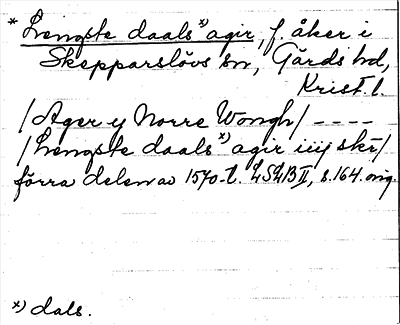 * Lengste daals ˣ⁾ agir, f. åker i
Skepparslövs sn, Gärds hd,
Krist. l.
/Ager y Norre Wongh/ ----
/Lengste daals ˣ⁾ agir iiij skr/
förra delen av 1570-t. LSLB II, s. 164. orig.
ˣ⁾ dals.